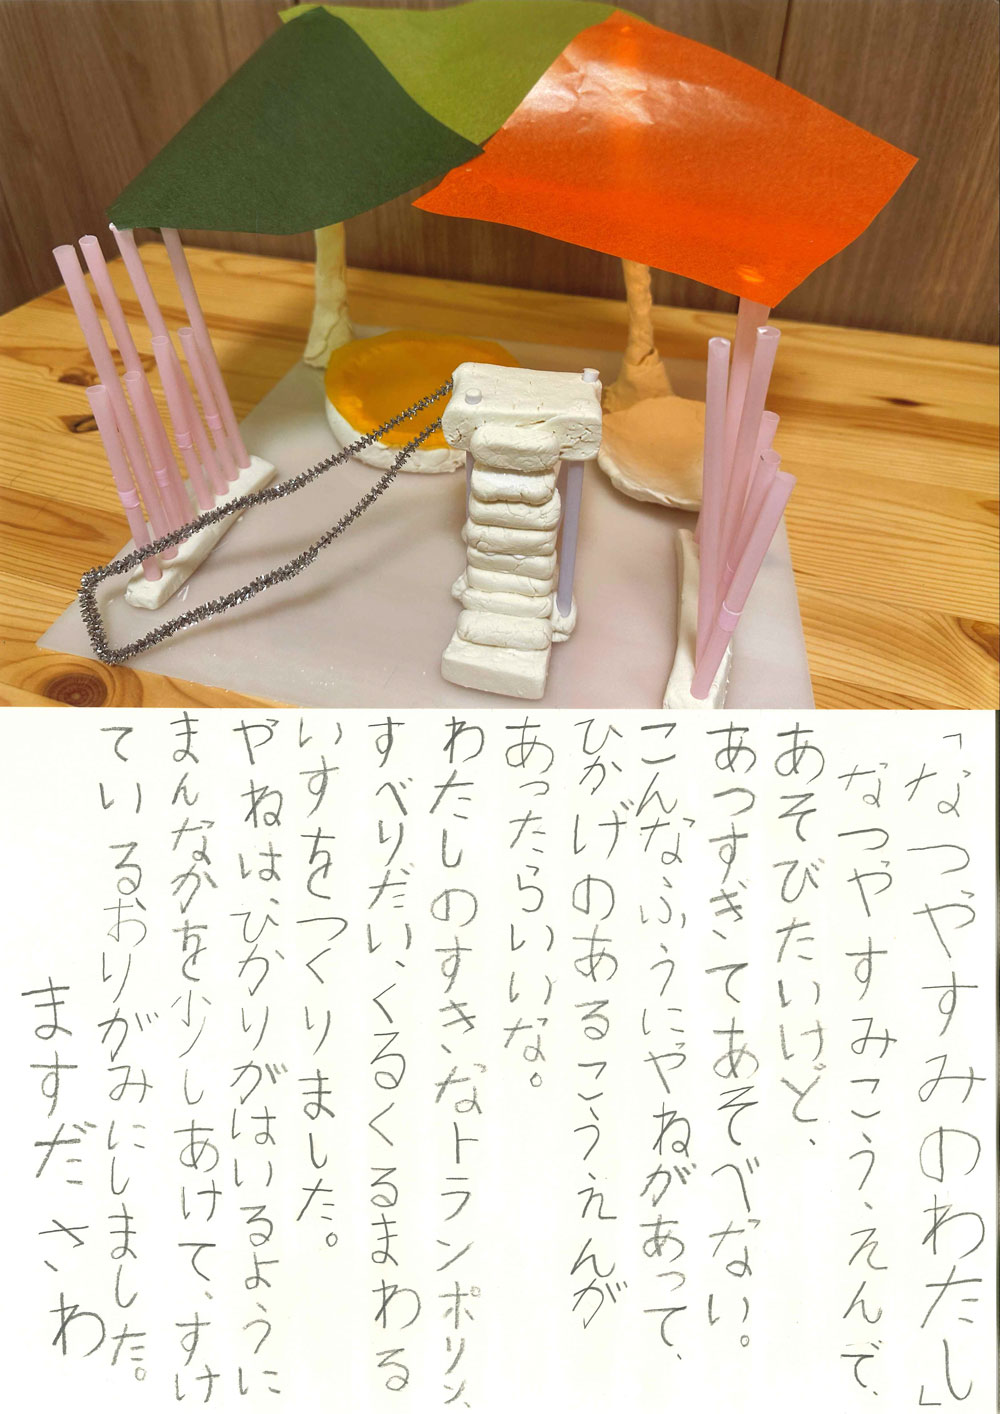 「なつやすみのわたし」
なつやすみこうえんで、
あそびたいけど、
あつすぎてあそべない。
こんなふうにやねがあって、
ひかげのあるこうえんが
あったらいいな。
わたしのすきなトランポリン、
すべりだい、くるくるまわる
いすをつくりました。
やねは、ひかりがはいるように
まんなかを少しあけて、すけ
ているおりがみにしました。
ますだ さわ